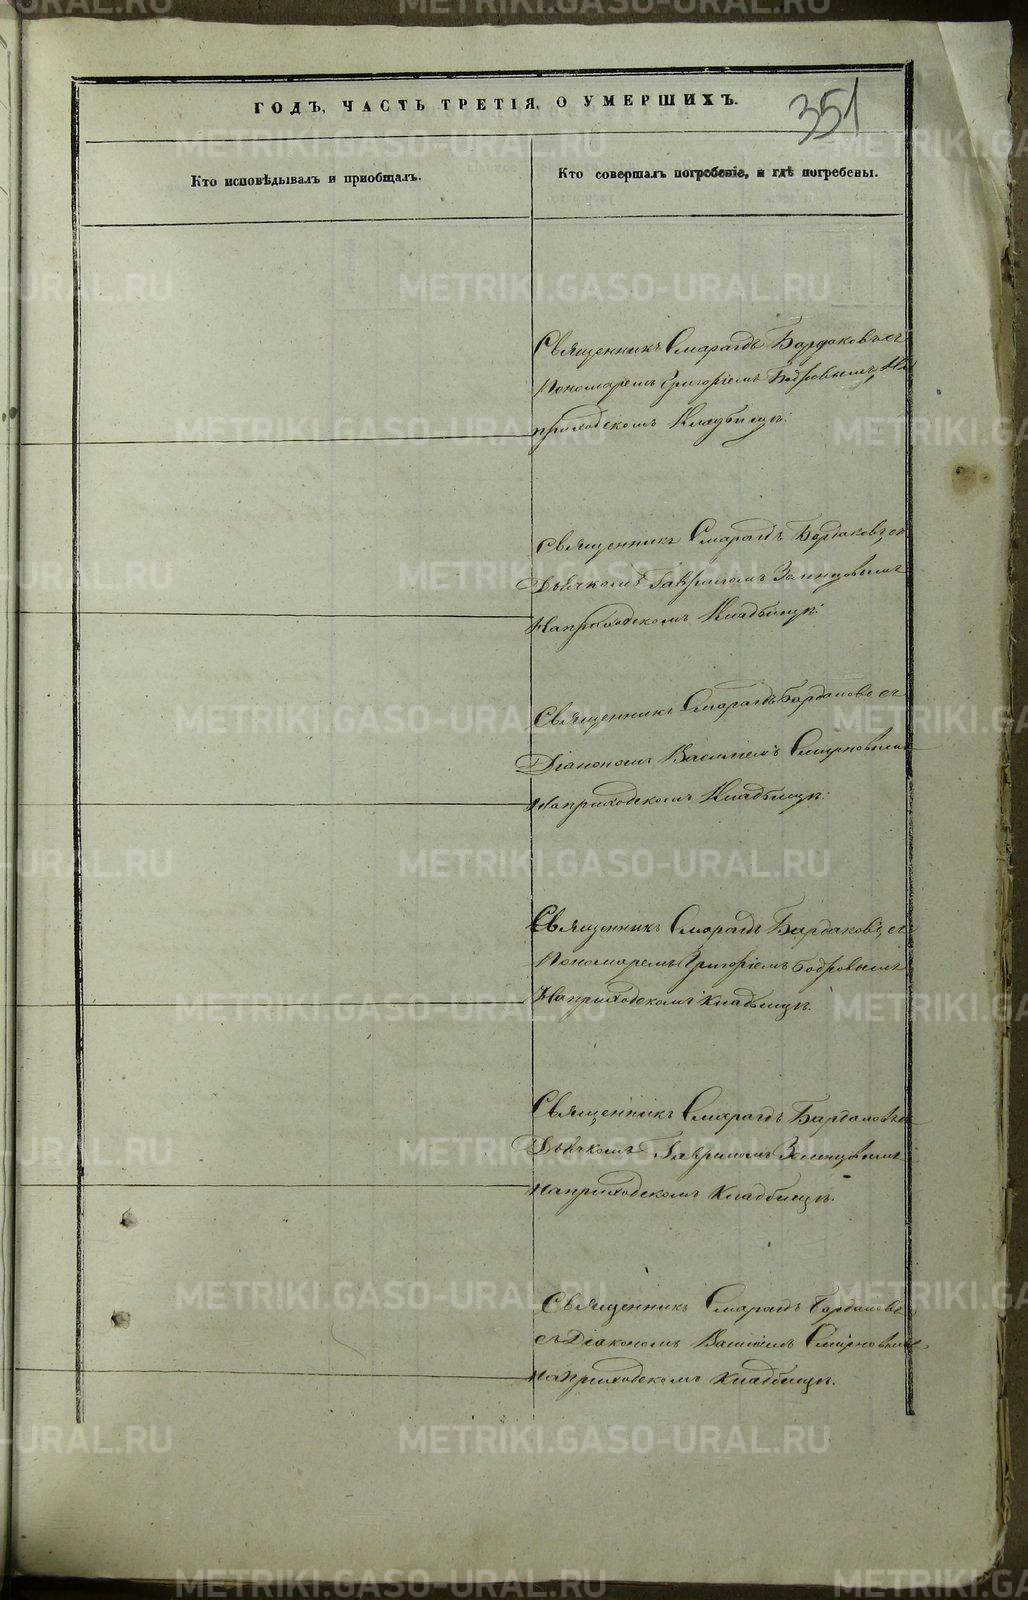 ГОДЪ, ЧАСТЬ ТРЕТІЯ, О УМЕРШИХЪ.
351
Кто исповѣдывалъ и пріобщалъ.
Кто совершалъ погребеніе, и гдѣ погребены.
Священникъ Смарагдъ Бардаковъ съ
Пономаремъ Григоріемъ Бобровымъ, На
приходскомъ Кладбищѣ.
Священникъ Смарагдъ Бардаковъ, съ
Дьячкомъ Гавриломъ
На приходскомъ Кладбищѣ.
Священникъ Смарагдъ Бардаковъ съ
Діакономъ Василіемъ Смирновымъ
На приходскомъ Кладбищѣ.
Священникъ Смарагдъ Бардаковъ, съ
Пономаремъ Григоріемъ Бобровымъ
На приходскомъ Кладбищѣ.
Священникъ Смарагдъ Бардаковъ съ
Дьячкомъ Гавриломъ
на приходскомъ Кладбищѣ.
Священникъ Смарагдъ Бардаковъ
съ Діакономъ Василіемъ Смирновымъ
на приходскомъ Кладбищѣ.
METRIKI.GASO-URAL.RU